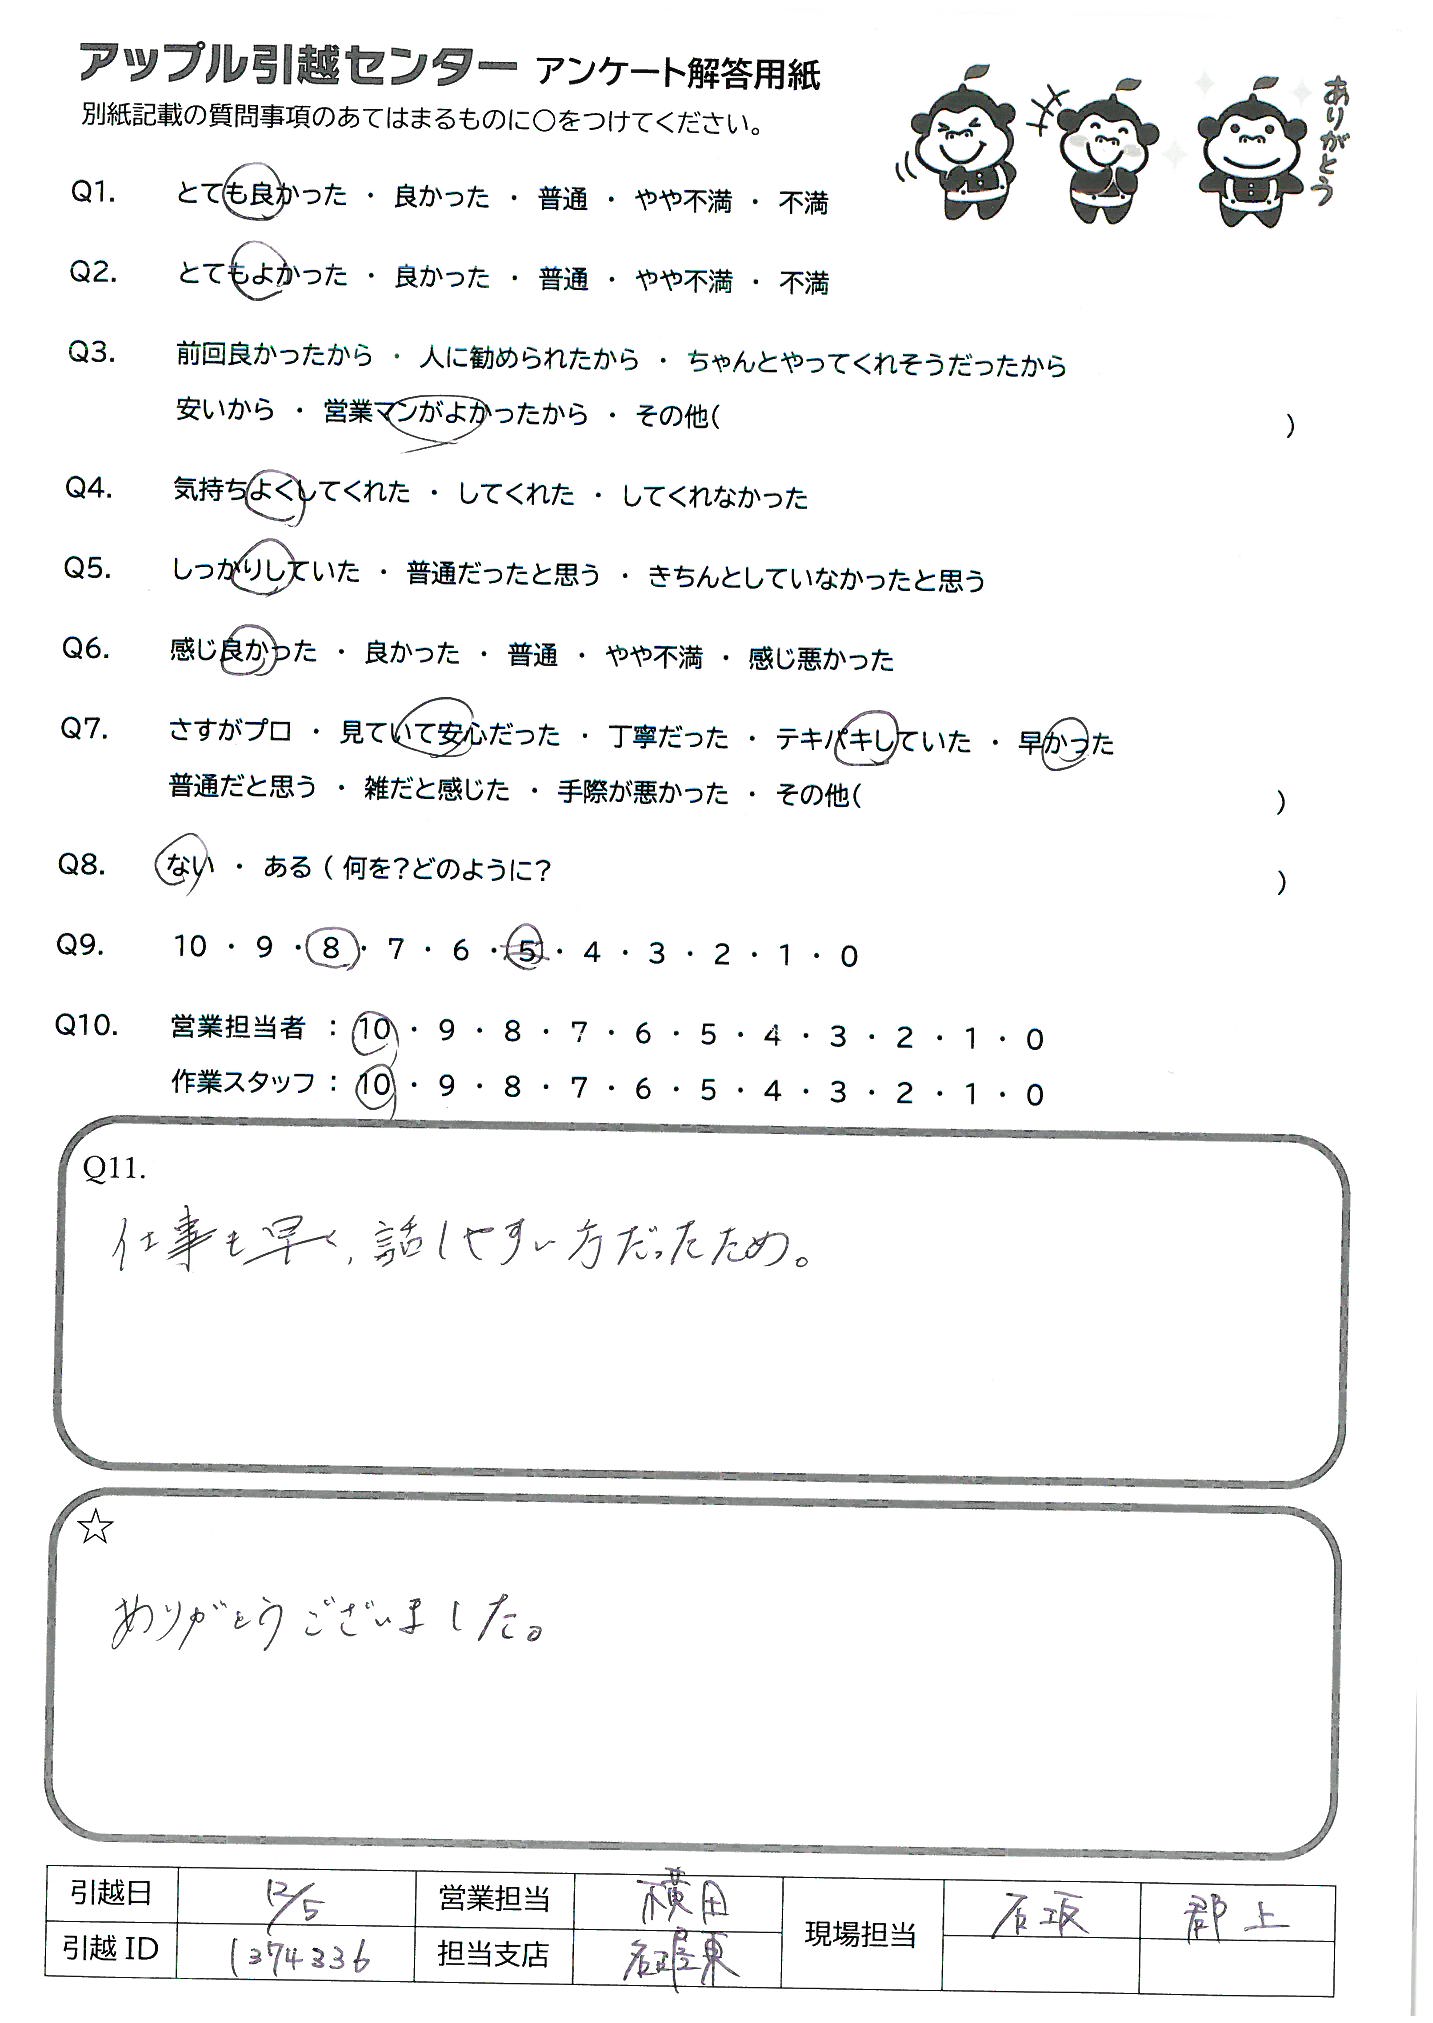 アップル引越センター アンケート解答用紙
別紙記載の質問事項のあてはまるものに○をつけてください。
ありがとう
Q1. とても良かった ・ 良かった ・ 普通 ・ やや不満 ・ 不満
Q2. とてもよかった ・ 良かった ・ 普通 ・ やや不満 ・ 不満
Q3. 前回良かったから ・ 人に勧められたから ・ ちゃんとやってくれそうだったから
安いから ・ 営業マンがよかったから ・ その他( )
Q4. 気持ちよくしてくれた ・ してくれた ・ してくれなかった
Q5. しっかりしていた ・ 普通だったと思う ・ きちんとしていなかったと思う
Q6. 感じ良かった ・ 良かった ・ 普通 ・ やや不満 ・ 感じ悪かった
Q7. さすがプロ ・ 見ていて安心だった ・ 丁寧だった ・ テキパキしていた ・ 早かった
普通だと思う ・ 雑だと感じた ・ 手際が悪かった ・ その他( )
Q8. ない ・ ある ( 何を?どのように? )
Q9. 10 ・ 9 ・ 8 ・ 7 ・ 6 ・ 5 ・ 4 ・ 3 ・ 2 ・ 1 ・ 0
Q10. 営業担当者 : 10 ・ 9 ・ 8 ・ 7 ・ 6 ・ 5 ・ 4 ・ 3 ・ 2 ・ 1 ・ 0
作業スタッフ : 10 ・ 9 ・ 8 ・ 7 ・ 6 ・ 5 ・ 4 ・ 3 ・ 2 ・ 1 ・ 0
Q11.
仕事も早く、話しやすい方だったため。
☆
ありがとうございました。
引越日 12/5 営業担当 横田 現場担当 石坂 郡上
引越 ID 1374336 担当支店 名古屋東